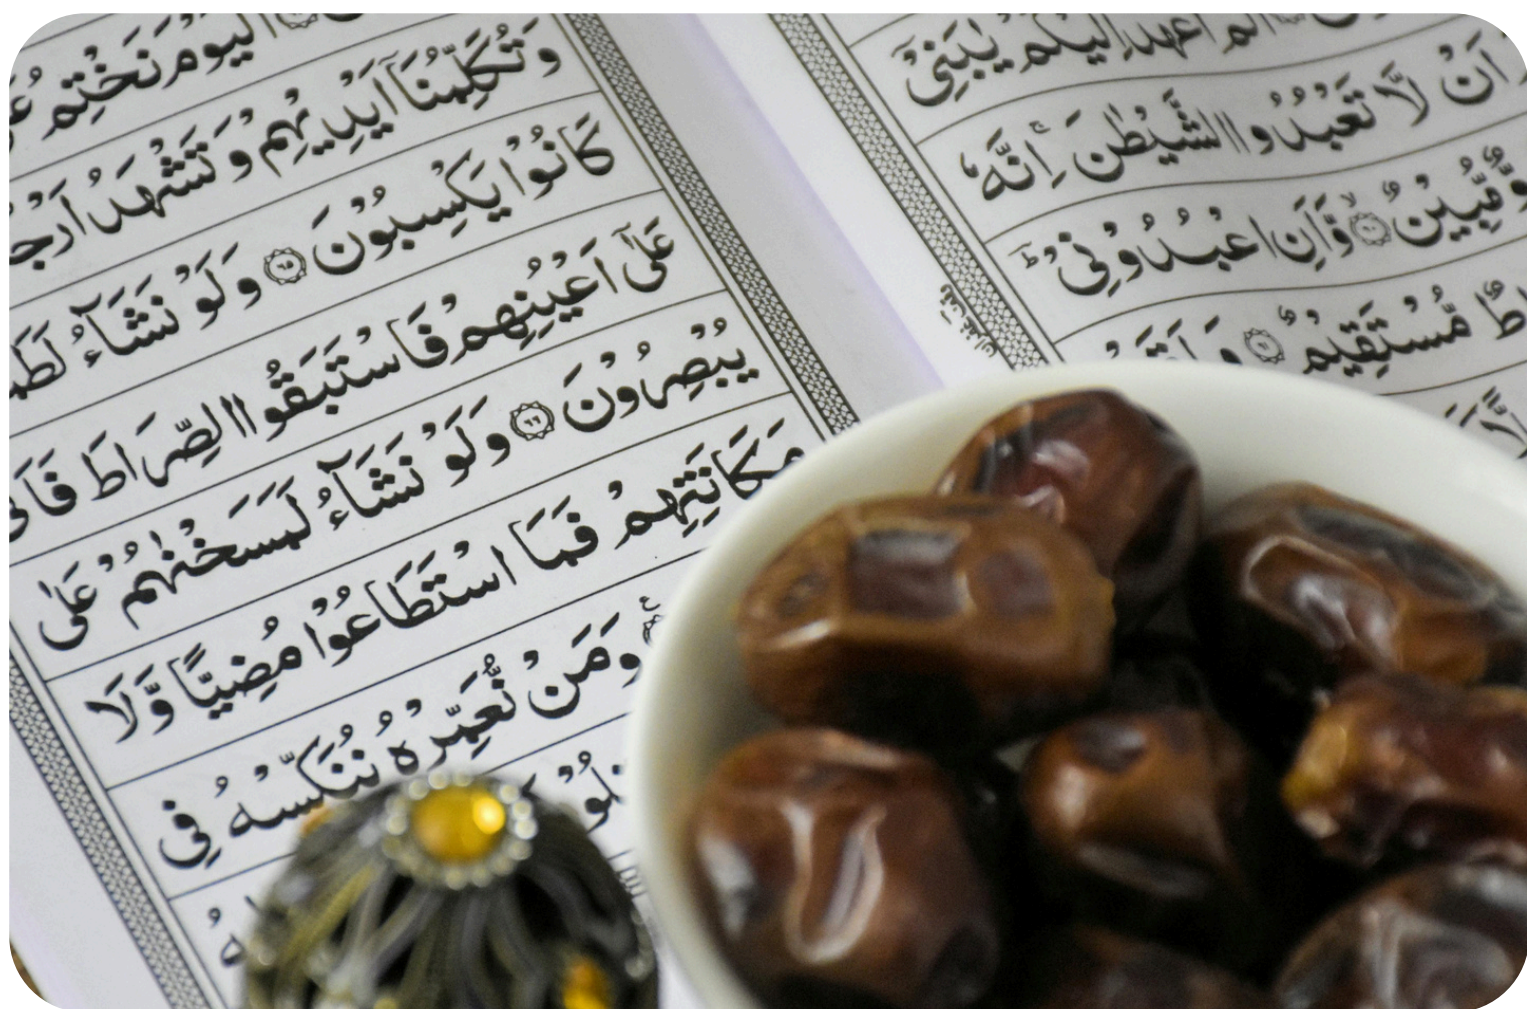 اَلَمْ اَعْهَدْ اِلَيْكُمْ يٰبَنِيْۤ
اَنْ لَّا تَعْبُدُوا الشَّيْطٰنَ ۚ اِنَّهٗ
مُّبِيْنٌ ۙ۶۰ وَّاَنِ اعْبُدُوْنِيْ ؕ
مُّسْتَقِيْمٌ ۶۱
اَلْيَوْمَ نَخْتِمُ
وَتُكَلِّمُنَاۤ اَيْدِيْهِمْ وَتَشْهَدُ
كَانُوْا يَكْسِبُوْنَ ۶۵ وَلَوْ نَشَآءُ
عَلٰۤى اَعْيُنِهِمْ فَاسْتَبَقُوا الصِّرَاطَ
يُبْصِرُوْنَ ۶۶ وَلَوْ نَشَآءُ لَمَسَخْنٰهُمْ عَلٰى
مَكَانَتِهِمْ فَمَا اسْتَطَاعُوْا مُضِيًّا وَّلَا
وَمَنْ نُّعَمِّرْهُ نُنَكِّسْهُ فِي